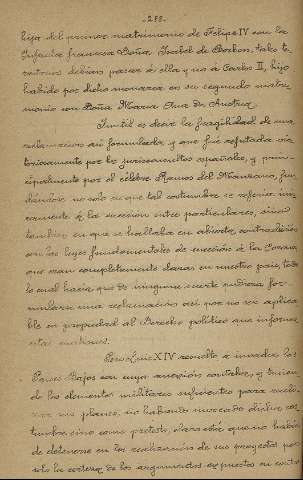 -288-
hija del primer matrimonio de Felipe IV con la
Infanta francesa Doña Isabel de Borbon, tales te-
rritorios debian pasar á ella y no á Carlos II, hijo
habido por dicho monarca en su segundo matri-
monio con Doña Maria Ana de Austria.
Inutil es decir la fragilidad de una
reclamacion asi formulada y que fué refutada vic-
toriosamente por los jurisconsultos españoles, y prin-
cipalmente por el célebre Ramos del Manzano, fun-
dándose no solo en que tal costumbre se referia úni-
camente á la sucesion entre particulares, sinó
tambien en que se hallaba en abierta contradiccion
con las leyes fundamentales de sucesion á la Corona
que eran completamente claras en nuestro pais, todo
lo cual hacia que de ninguna suerte pudiera for-
mularse una reclamacion asi por no ser aplica-
ble en propiedad al Derecho político que informa
estas
Pero Luis XIV resuelto á invadir los
Paises Bajos con cuya anexion contaba, y dueño
de los elementos militares suficientes para reali-
zar sus planes, no habiendo invocado dicha cos-
tumbre sino como pretesto, claro está que no habia
de detenerse en la realizacion de sus proyectos por
solo la certeza de los argumentos expuestos en contra